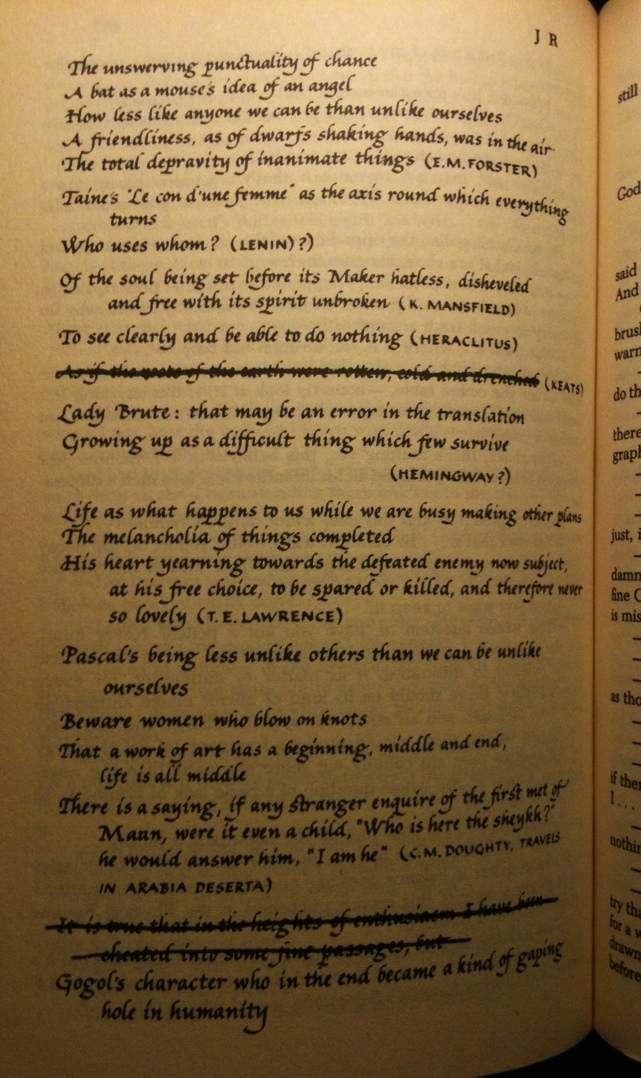 J R
The unswerving punctuality of chance
A bat as a mouse's idea of an angel
How less like anyone we can be than unlike ourselves
A friendliness, as of dwarfs shaking hands, was in the air.
The total depravity of inanimate things (E.M. FORSTER)
Taine's "Le con d'une femme" as the axis round which everything
turns
Who uses whom? (LENIN)?)
Of the soul being set before its Maker hatless, disheveled
and free with its spirit unbroken (K. MANSFIELD)
To see clearly and be able to do nothing (HERACLITUS)
As if the roots of the earth were rotten, cold and drenched (KEATS)
Lady Brute: that may be an error in the translation
Growing up as a difficult thing which few survive
(HEMINGWAY?)
Life as what happens to us while we are busy making other plans
The melancholia of things completed
His heart yearning towards the defeated enemy now subject,
at his free choice, to be spared or killed, and therefore never
so lovely (T. E. LAWRENCE)
Pascal's being less unlike others than we can be unlike
ourselves
Beware women who blow on knots
That a work of art has a beginning, middle and end,
life is all middle
There is a saying, if any stranger enquire of the first met of
Maan, were it even a child, "Who is here the sheykh?"
he would answer him, "I am he" (C.M. DOUGHTY, TRAVELS
IN ARABIA DESERTA)
It is true that in the heights of enthusiasm I have been
cheated into some fine passages, but
Gogol's character who in the end became a kind of gaping
hole in humanity
still
God
said
And
brus
warn
do th
there
grap
just, i
damn
fine C
is mis
as tho
if the
I...
nothin
try th
for a
drawn
before